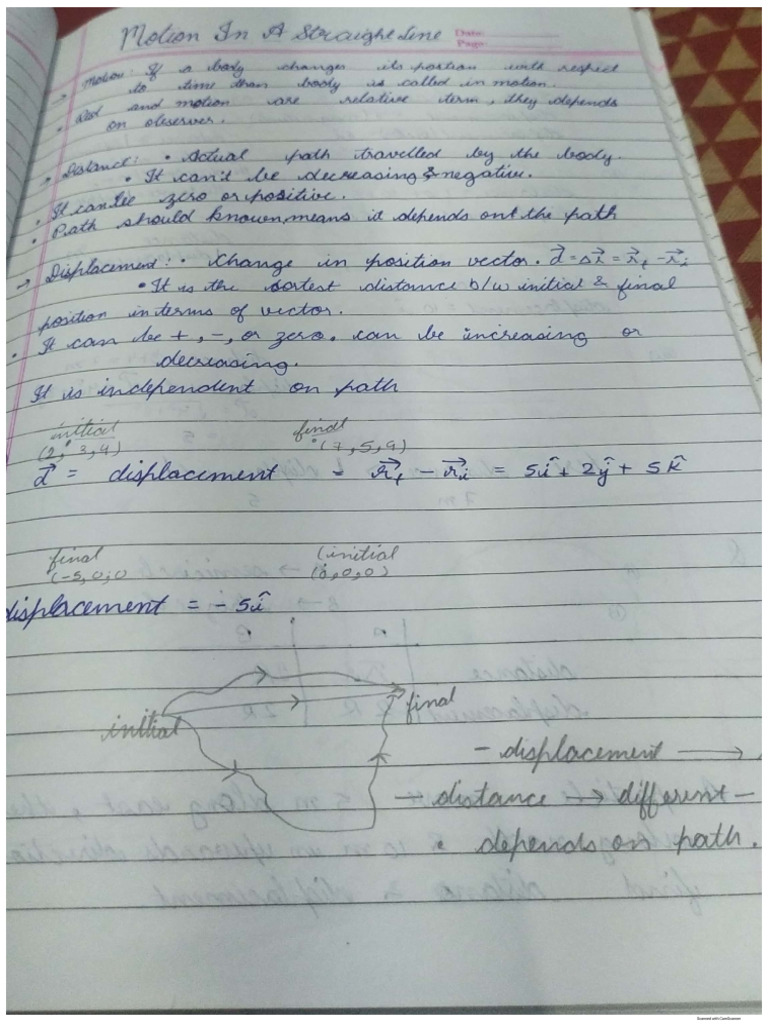 Motion In A Straight Line
Date:
Page:
→ Motion: If a body changes its portion with respect
to time than body is called in motion.
• Rest and motion are relative term, they depends
on observer.
→ Distance: • Actual path travelled by the body.
• It can't be decreasing & negative.
• It can be zero or positive.
• Path should known, means it depends ont the path
→ Displacement: • Change in position vector. d⃗ = Δr⃗ = r⃗f - r⃗i
• It is the sortest distance b/w initial & final
position in terms of vector.
• It can be +, -, or zero. can be increasing or
decreasing.
It is independent on path
initial final
(2, 3, 4) (7, 5, 9)
d⃗ = displacement - r⃗f - r⃗i = 5î + 2ĵ + 5k̂
final (initial
(-5, 0, 0 (0, 0, 0)
displacement = - 5î
initial final
- displacement →
→ distance → different -
• depends on path.
Scanned with CamScanner